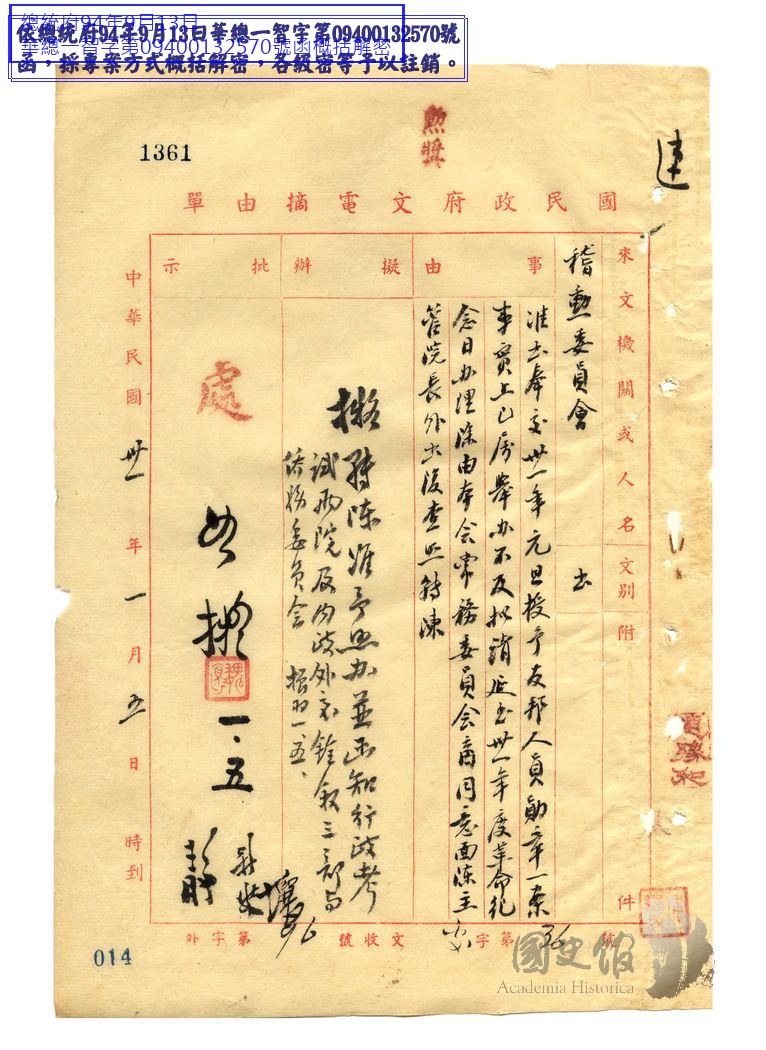 總統府94年9月13日
華總一智字第09400132570號函概括解密
依總統府94年9月13日華總一智字第09400132570號
函，採專案方式概括解密，各級密等予以註銷。
勲獎
1361
速
國民政府文電摘由單
來文機關或人名
文別
附件
稽勳委員會
事由
准
奉交卅一年元旦授予友邦人員勛章一案
事實上已屬舉办不及拟請延至卅一年度革命紀
念日办理除由本会常務委員会商同意面陳主
管院長外
復查照轉陳
擬辦
擬轉陳准予照办並函知行政考
試兩院及内政外交銓敘三部与
僑務委員会
一、五、
批示
處
如擬
一、五
中華民國卅一年一月五日時到
收文
字第36號
外字第號
014
國史館
Academia Historica